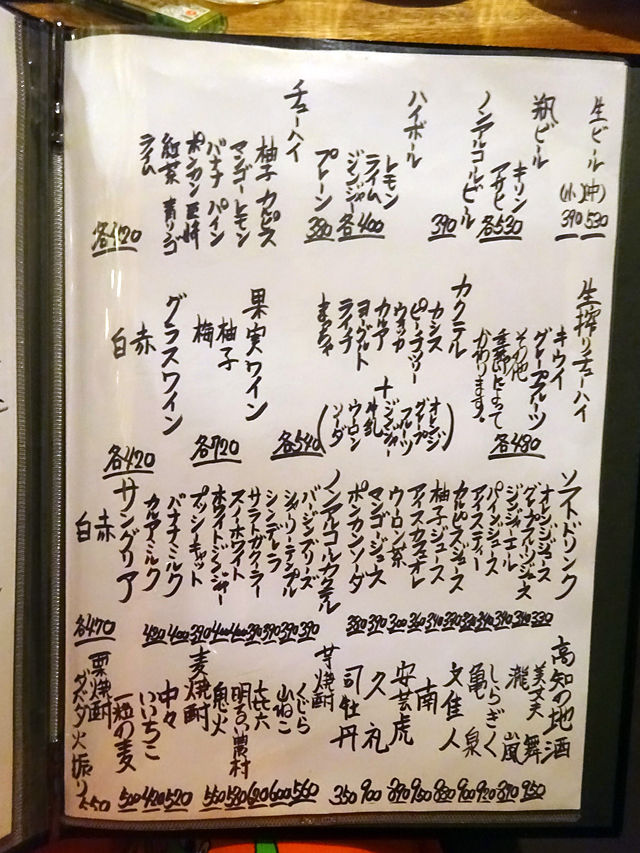 生ビール
(中) 530
(小) 390
瓶ビール
キリン
アサヒ
各530
ノンアルコールビール
390
ハイボール
レモン
ライム
ジンジャー
各400
プレーン
380
チューハイ
柚子 カルピス
マンゴー レモン
バナナ パイン
ポンカン 巨峰
紅茶 青リンゴ
ライム
各420
生搾りチューハイ
キウイ
グレープフルーツ
その他
季節によって
かわります。
各480
カクテル
カシス
ピーチツリー
ウォッカ
カルア
ヨーグルト
ライチ
まっちゃ
+
(オレンジ
グレープ
フルーツ
ジンジャー
牛乳
ウーロン
ソーダ)
各540
果実ワイン
柚子
梅
各720
グラスワイン
赤
白
各420
ソフトドリンク
オレンジジュース
グレープフルーツジュース
ジンジャーエール
パインジュース
アイスティー
カルピスジュース
柚子ジュース
アイスカフェオレ
ウーロン茶
マンゴージュース
ポンカンソーダ
ノンアルコールカクテル
バージンブリーズ
シャーリーテンプル
シンデレラ
サラトガクーラー
スノーホワイト
ホワイトジンジャー
プッシーキャット
バナナミルク
カルアミルク
サングリア
赤
白
各470
高知の地酒
美丈夫 舞
瀧嵐
しらぎく
亀泉
文佳人
南
安芸虎
久礼
司牡丹
芋焼酎
くじら
山ねこ
㐂六
明るい農村
鬼火
麦焼酎
中々
いいちこ
一粒の麦
栗焼酎
ダバダ火振り
550